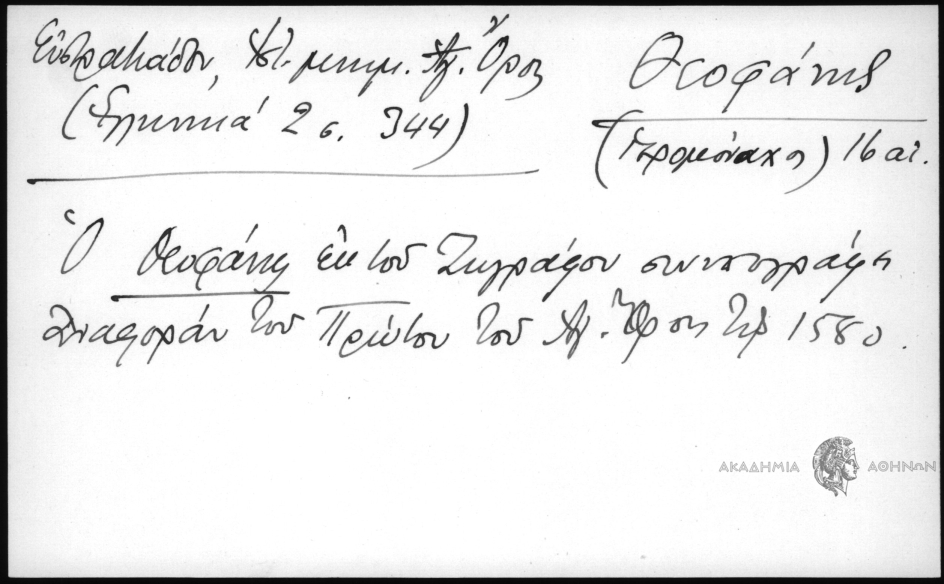 Εὐστρατιάδου, Ἱστ. μνημ. Ἁγ. Ὄρους
(Ἑλληνικά 2 σ. 344)
Θεοφάνης
(ἱερομόναχος) 16 αἰ.
Ὁ Θεοφάνης ἐκ τοῦ Ζωγράφου συνυπογράφει
ἀναφοράν τοῦ Πρώτου τοῦ Ἁγ. Ὄρους τῷ 1580.
ΑΚΑΔΗΜΙΑ ΑΘΗΝΩΝ